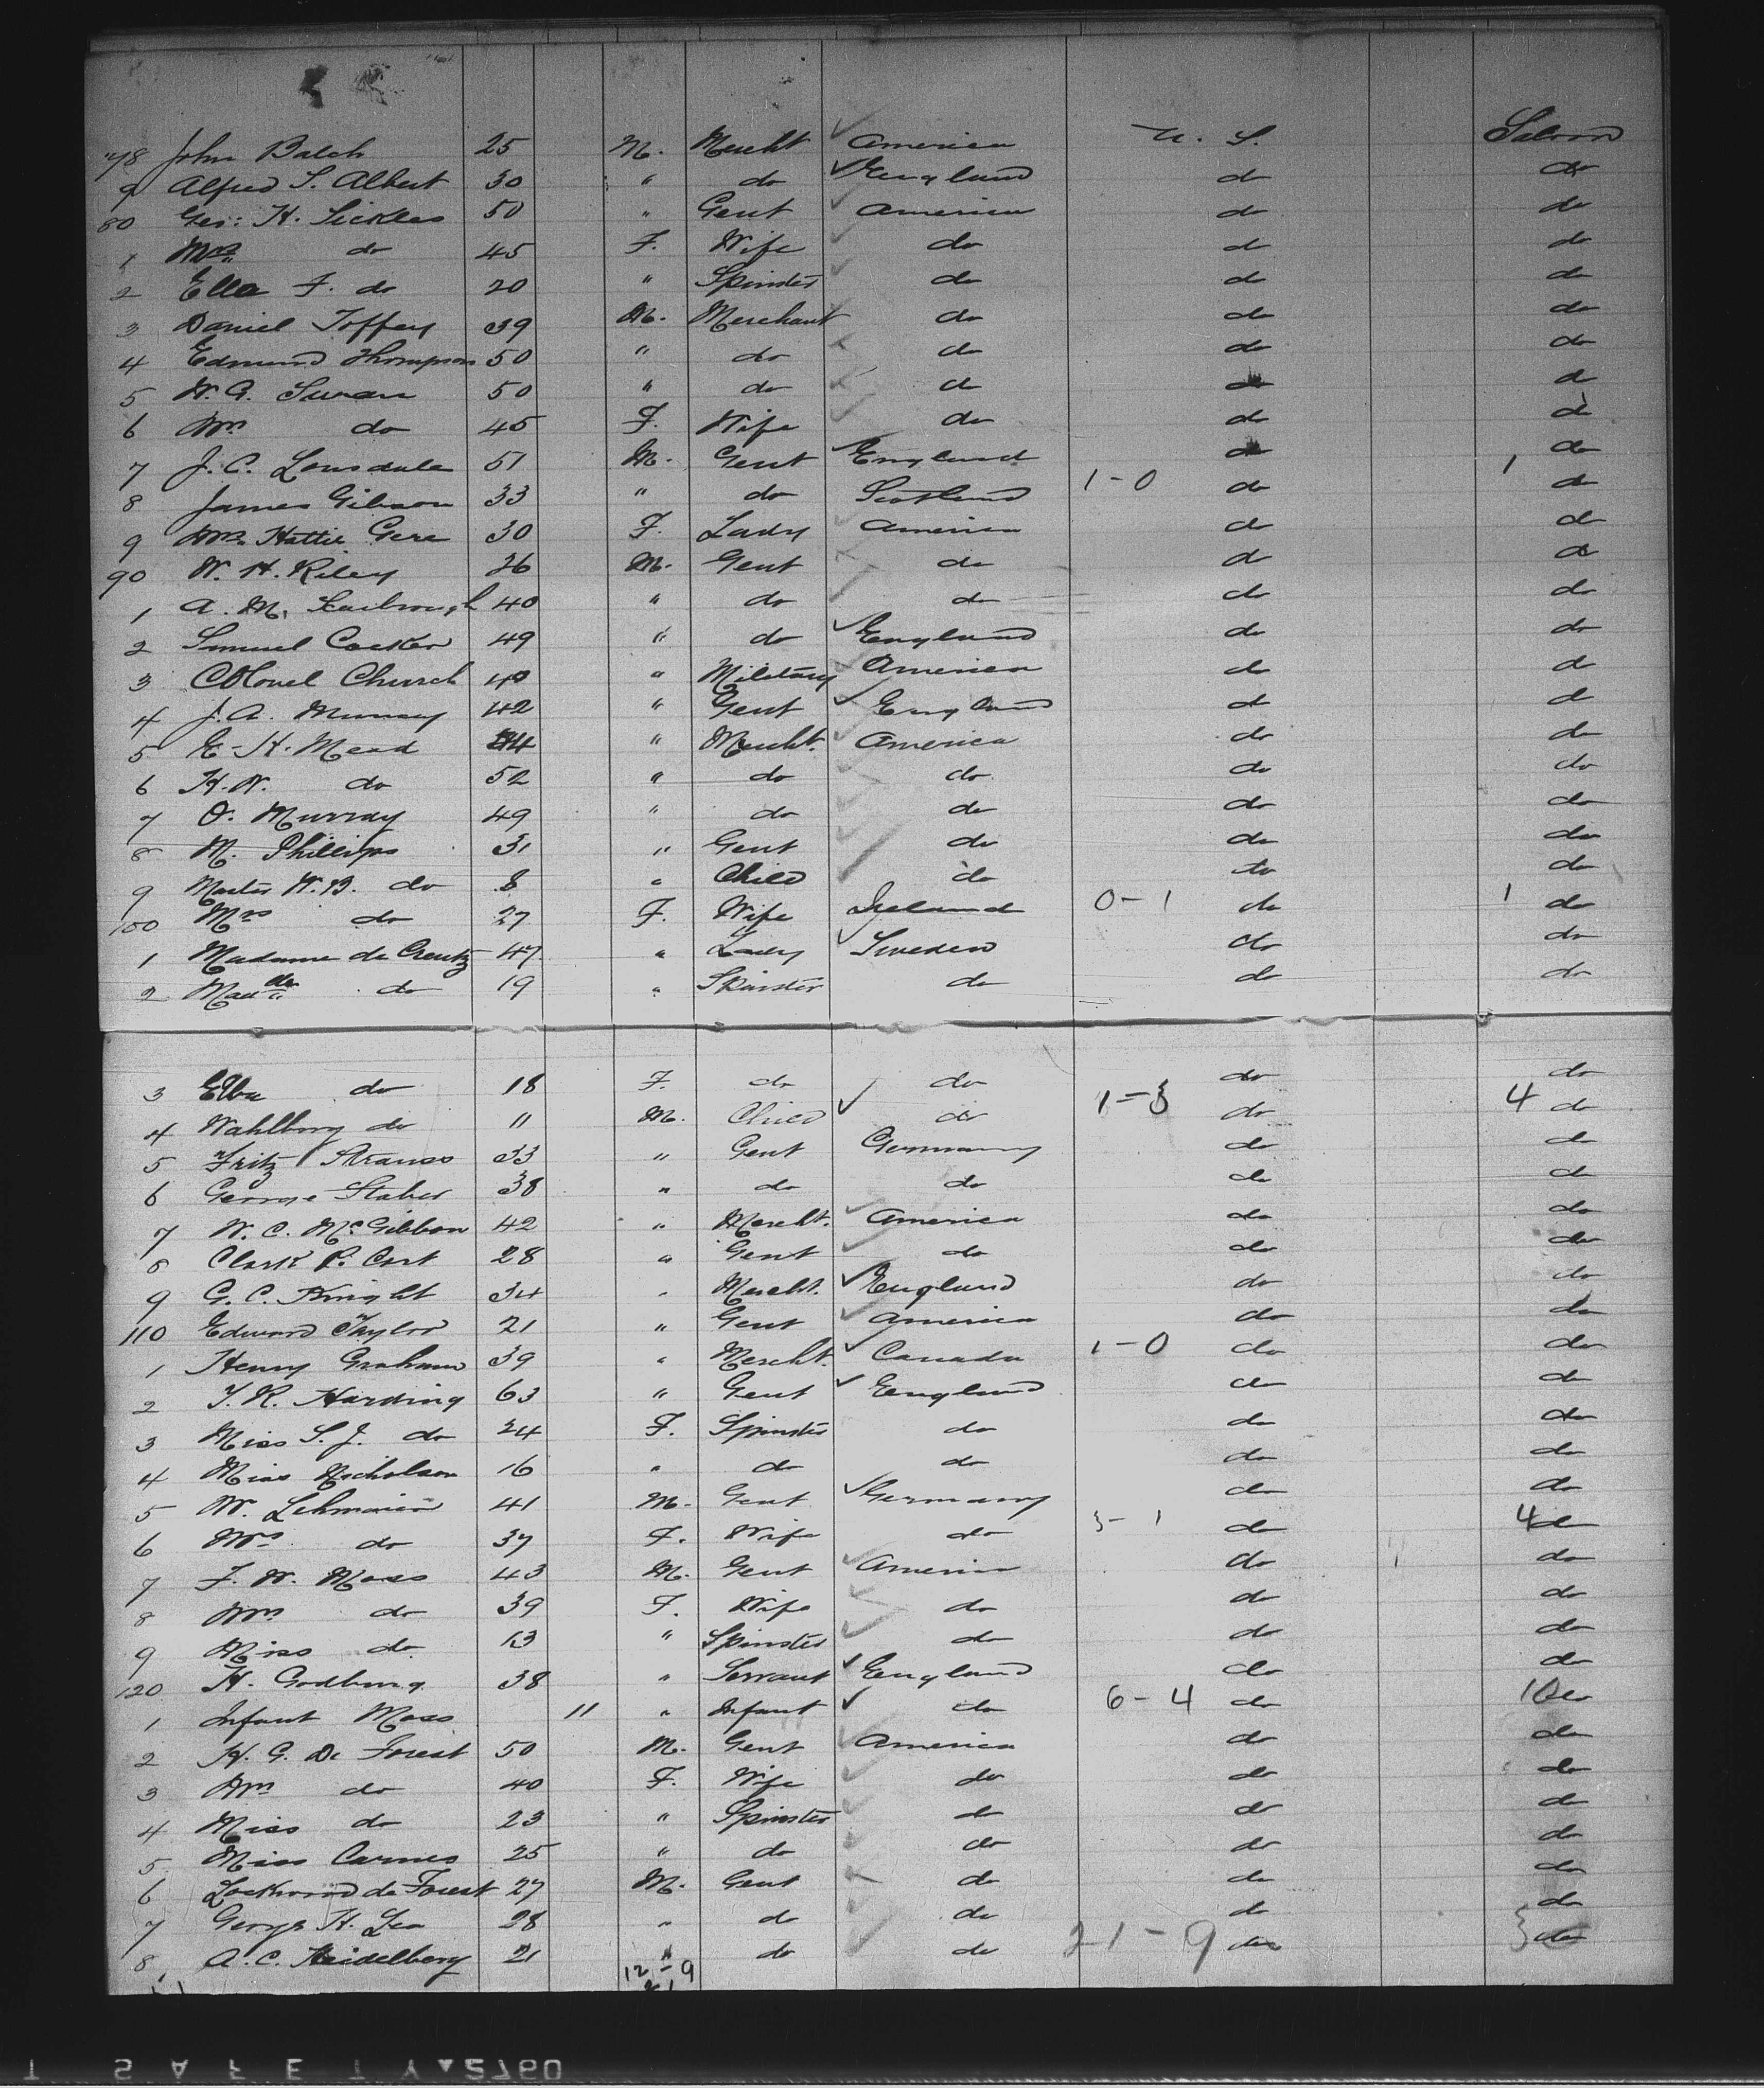 78 John Balch 25 M. Mercht America U. S. Saloon
9 Alfred S. Albert 30 " do England do do
80 Geo: H. Sickles 50 " Gent America do do
1 Mrs do 45 F. Wife do do do
2 Ella F. do 20 " Spinster do do do
3 Daniel Toffey 39 M. Merchant do do do
4 Edmund Thompson 50 " do do do do
5 W. G. Swan 50 " do do do do
6 Mrs do 45 F. Wife do do do
7 J. C. Lonsdale 51 M. Gent England do do
8 James Gibson 33 " do Scotland 1-0 do 1 do
9 Mrs Hattie Gere 30 F. Lady America do do
90 W. H. Riley 26 M. Gent do do do
1 A. M. Scarbrough 40 " do do do do
2 Samuel Cocker 49 " do England do do
3 Colonel Church 40 " Military America do do
4 J. A. Murray 42 " Gent England do do
5 E. H. Mead 44 " Mercht. America do do
6 H. W. do 52 " do do do do
7 O. Murray 49 " do do do do
8 M. Phillips 31 " Gent do do do
9 Master W. B. do 8 " Child do do do
100 Mrs do 27 F. Wife Ireland 0-1 do 1 do
1 Madame de Creutz 47 " Lady Sweden do do
2 Madlle do 19 " Spinster do do do
3 Ebba do 18 F. do do do do
4 Wahlborg do 11 M. Child do 1-3 do 4 do
5 Fritz Strauss 33 " Gent Germany do do
6 George Staber 38 " do do do do
7 W. C. McGibbon 42 " Mercht. America do do
8 Clark P. Cort 28 " Gent do do do
9 G. C. Knight 34 " Mercht. England do do
110 Edward Taylor 21 " Gent America do do
1 Henry Graham 39 " Mercht. Canada 1-0 do do
2 T. R. Harding 63 " Gent England do do
3 Miss S. J. do 24 F. Spinster do do do
4 Miss Nicholson 16 " do do do do
5 W. Lehmaier 41 M. Gent Germany do do
6 Mrs do 37 F. Wife do 3-1 do 4 do
7 F. W. Moss 43 M. Gent America do do
8 Mrs do 39 F. Wife do do do
9 Miss do 13 " Spinster do do do
120 H. Godbury 38 " Servant England do do
1 Infant Moss 11 " Infant do 6-4 do 10 do
2 H. G. De Forest 50 M. Gent America do do
3 Mrs do 40 F. Wife do do do
4 Miss do 23 " Spinster do do do
5 Miss Carnes 25 " do do do do
6 Lockwood de Forest 27 M. Gent do do do
7 George H. Lea 28 " do do do do
8 A. C. Heidelberg 21 " do do 21-9 do do
12-9
21
T SAFETY▲2760